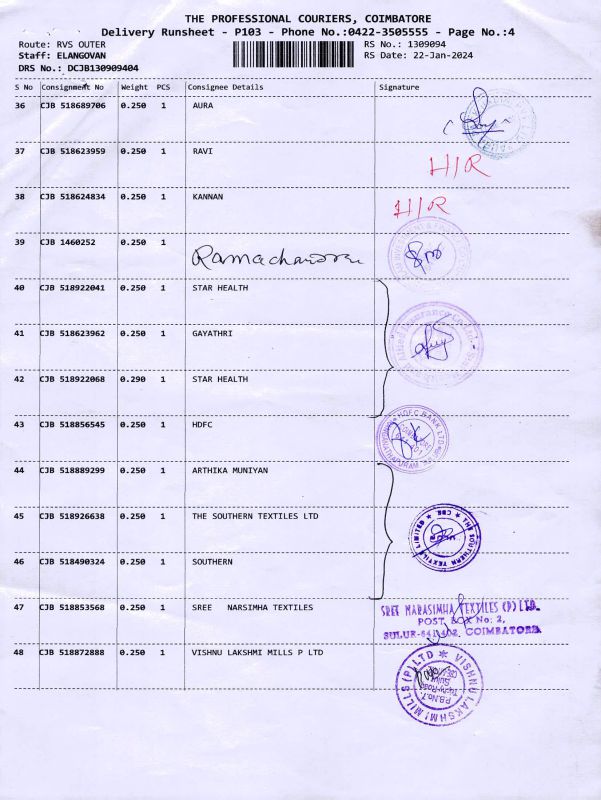 THE PROFESSIONAL COURIERS, COIMBATORE
Delivery Runsheet - P103 - Phone No.:0422-3505555 - Page No.:4
Route: RVS OUTER RS No.: 1309094
Staff: ELANGOVAN RS Date: 22-Jan-2024
DRS No.: DCJB130909404
S No Consignment No Weight PCS Consignee Details Signature
36 CJB 518689706 0.250 1 AURA
37 CJB 518623959 0.250 1 RAVI H/R
38 CJB 518624834 0.250 1 KANNAN H/R
39 CJB 1460252 0.250 1
40 CJB 518922041 0.250 1 STAR HEALTH
41 CJB 518623962 0.250 1 GAYATHRI
42 CJB 518922068 0.290 1 STAR HEALTH
43 CJB 518856545 0.250 1 HDFC HDFC BANK LTD
44 CJB 518889299 0.250 1 ARTHIKA MUNIYAN
45 CJB 518926638 0.250 1 THE SOUTHERN TEXTILES LTD THE SOUTHERN TEXTILES LIMITED ★ CBE ★
46 CJB 518490324 0.250 1 SOUTHERN
47 CJB 518853568 0.250 1 SREE NARSIMHA TEXTILES SREE NARASIMHA TEXTILES (P) LTD.
POST BOX No: 2,
SULUR-641402, COIMBATORE
48 CJB 518872888 0.250 1 VISHNU LAKSHMI MILLS P LTD VISHNU LAKSHMI MILLS (P) LTD ★
P.B.No.7,